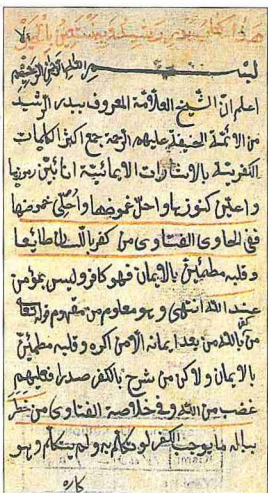 هذا كتاب بدر رشيد وبه نستعين بالخير
بسم الله الرحمن الرحيم
اعلم ان الشيخ العلامة المعروف ببدر الرشيد
من الائمة الحنيفة عليهم الرحمة جمع اكثر الكلمات
الكفرية بالاشارات الايمائية انا ابين رموزها
واعين كنوزها واحل غموضها واحلى غموضها
ففى الحاوى الفتاوى من كفر باللسان طائعا
وقلبه مطمئن بالايمان فهو كافر وليس بمؤمن
عند الله انتهى وهو معلوم من مفهوم قوله تعالى
من كفر بالله من بعد ايمانه الا من اكره وقلبه مطمئن
بالايمان ولاكن من شرح بالكفر صدرا فعليهم
غضب من الله وفى خلاصة الفتاوى من خطر
بباله ما يوجب الكفر لو تكلم به ولم يتكلم وهو
كاره